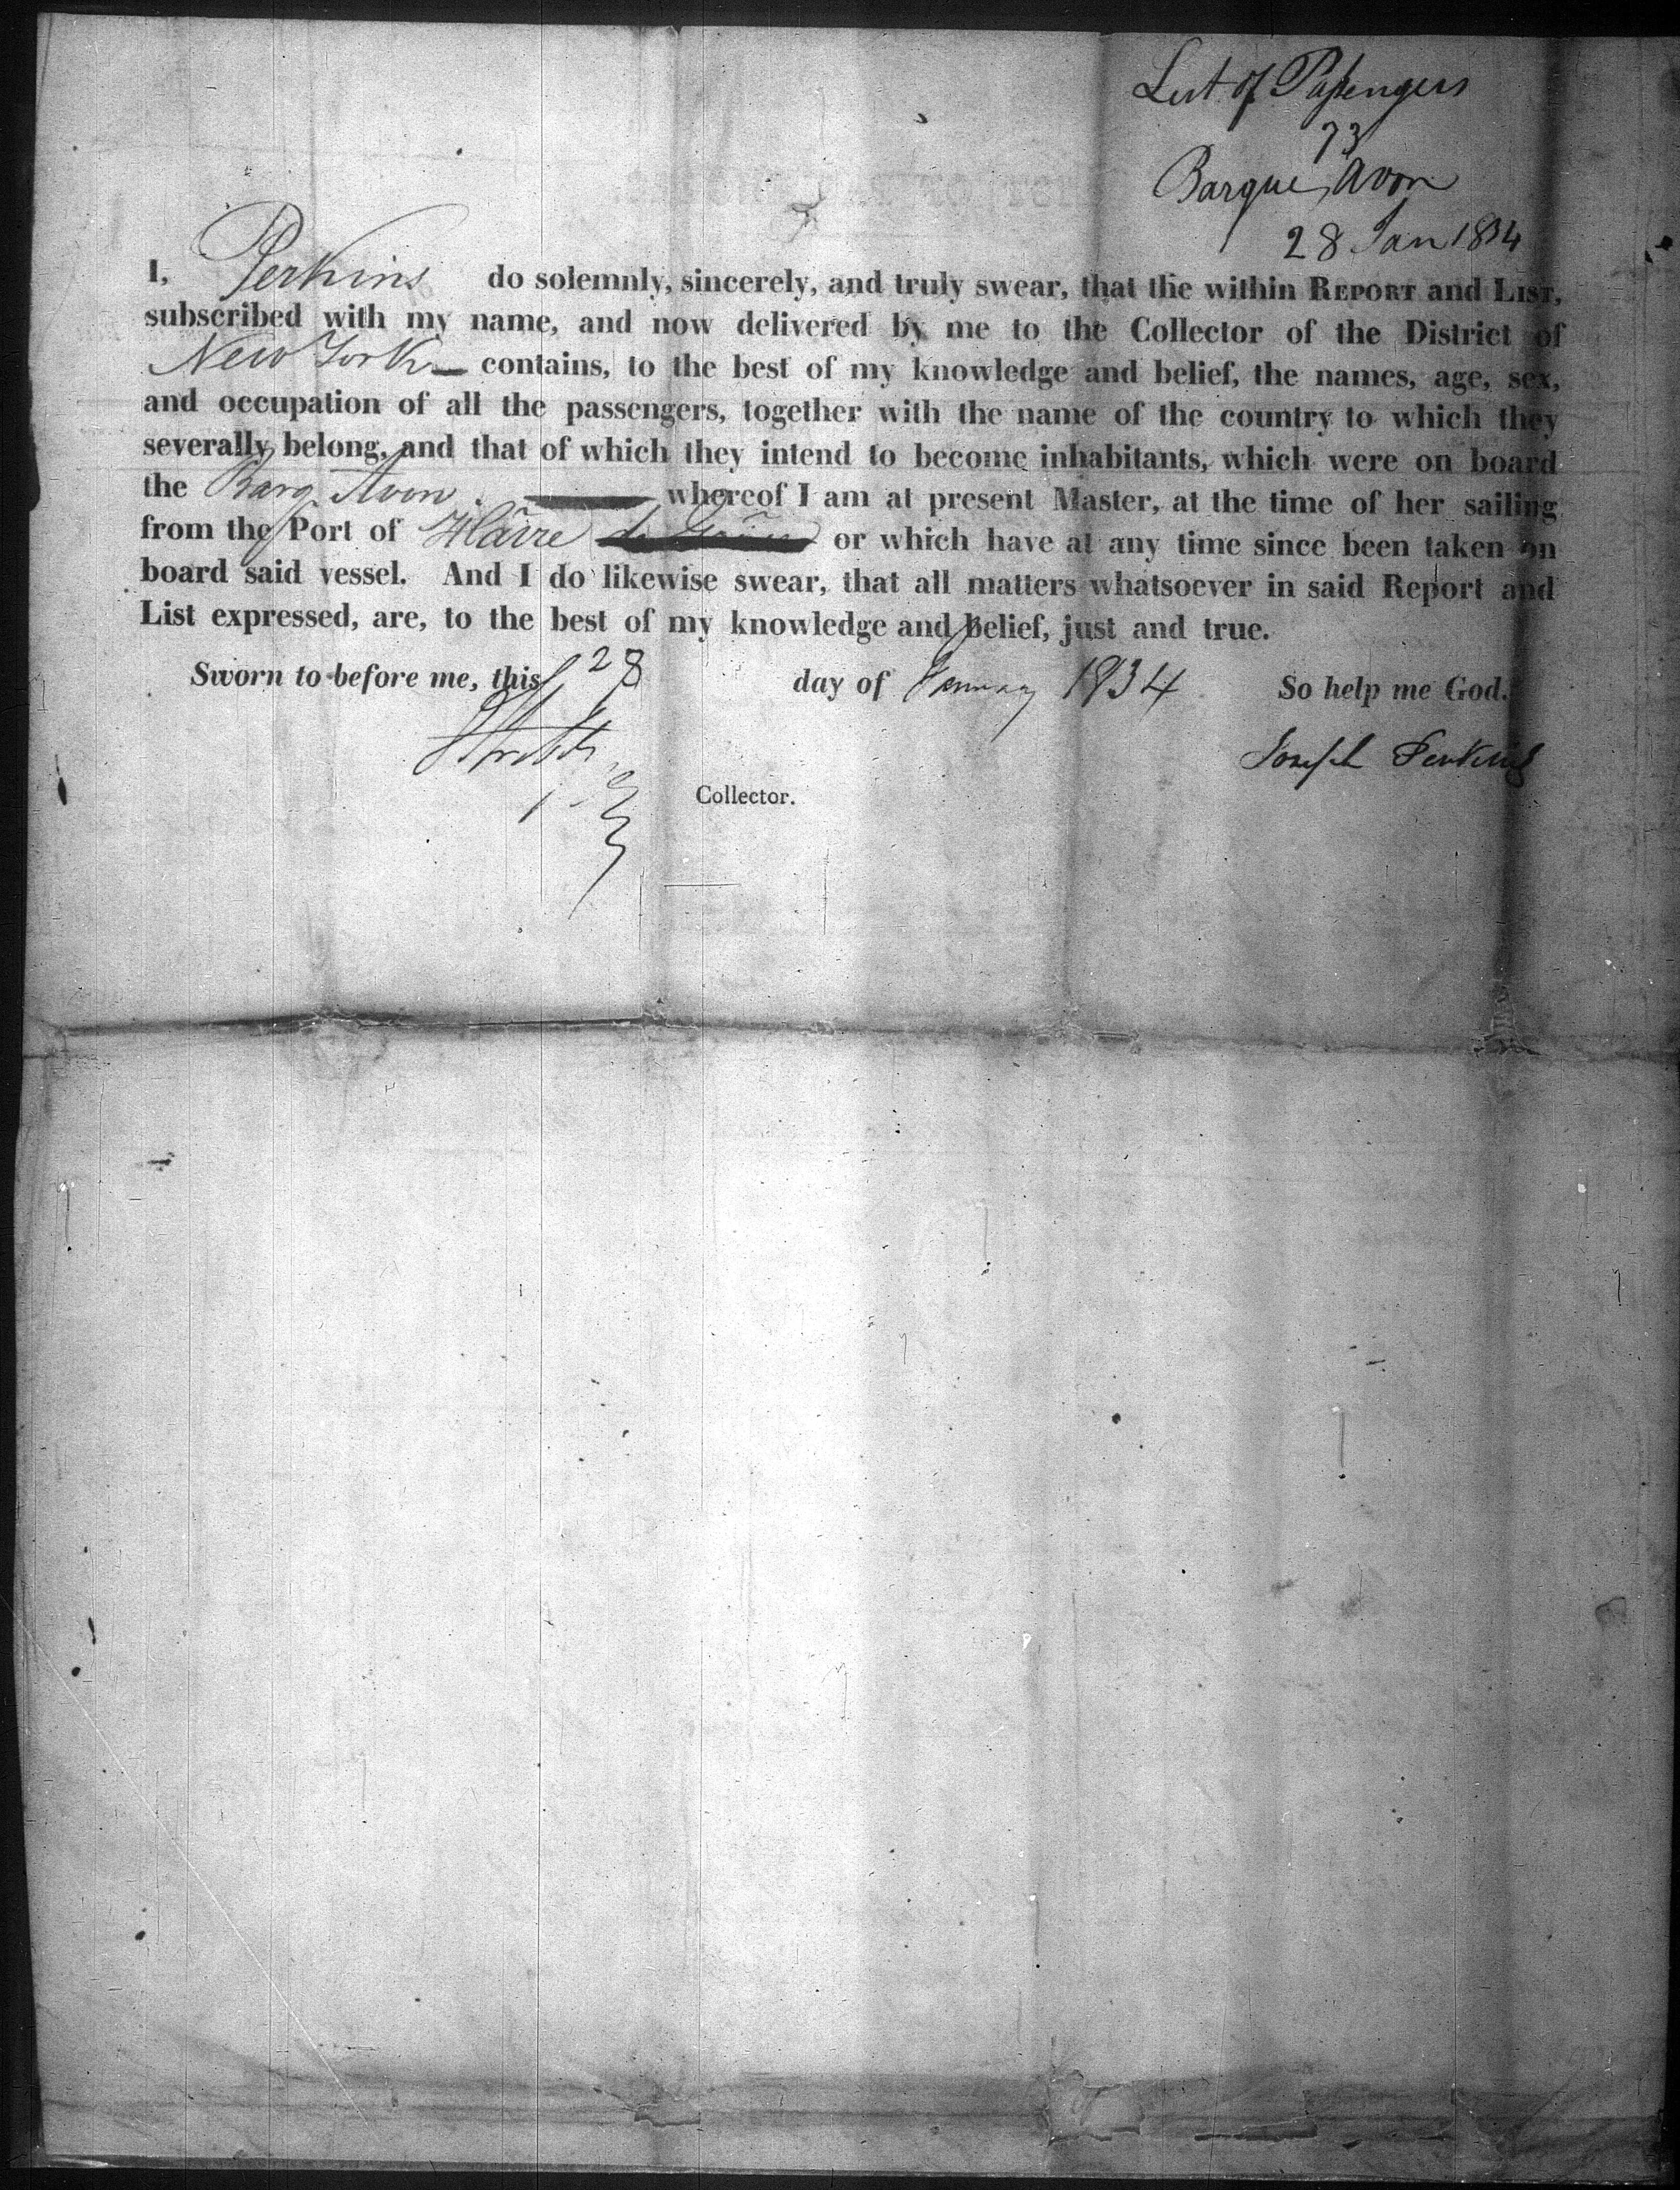 List of Passengers
73
Barque Avon
28 Jan 1834
I, Perkins do solemnly, sincerely, and truly swear, that the within REPORT and LIST,
subscribed with my name, and now delivered by me to the Collector of the District of
New York contains, to the best of my knowledge and belief, the names, age, sex,
and occupation of all the passengers, together with the name of the country to which they
severally belong, and that of which they intend to become inhabitants, which were on board
the Barq Avon. whereof I am at present Master, at the time of her sailing
from the Port of Havre or which have at any time since been taken on
board said vessel. And I do likewise swear, that all matters whatsoever in said Report and
List expressed, are, to the best of my knowledge and belief, just and true.
Sworn to before me, this 28 day of January 1834 So help me God.
Joseph Perkins
Collector.